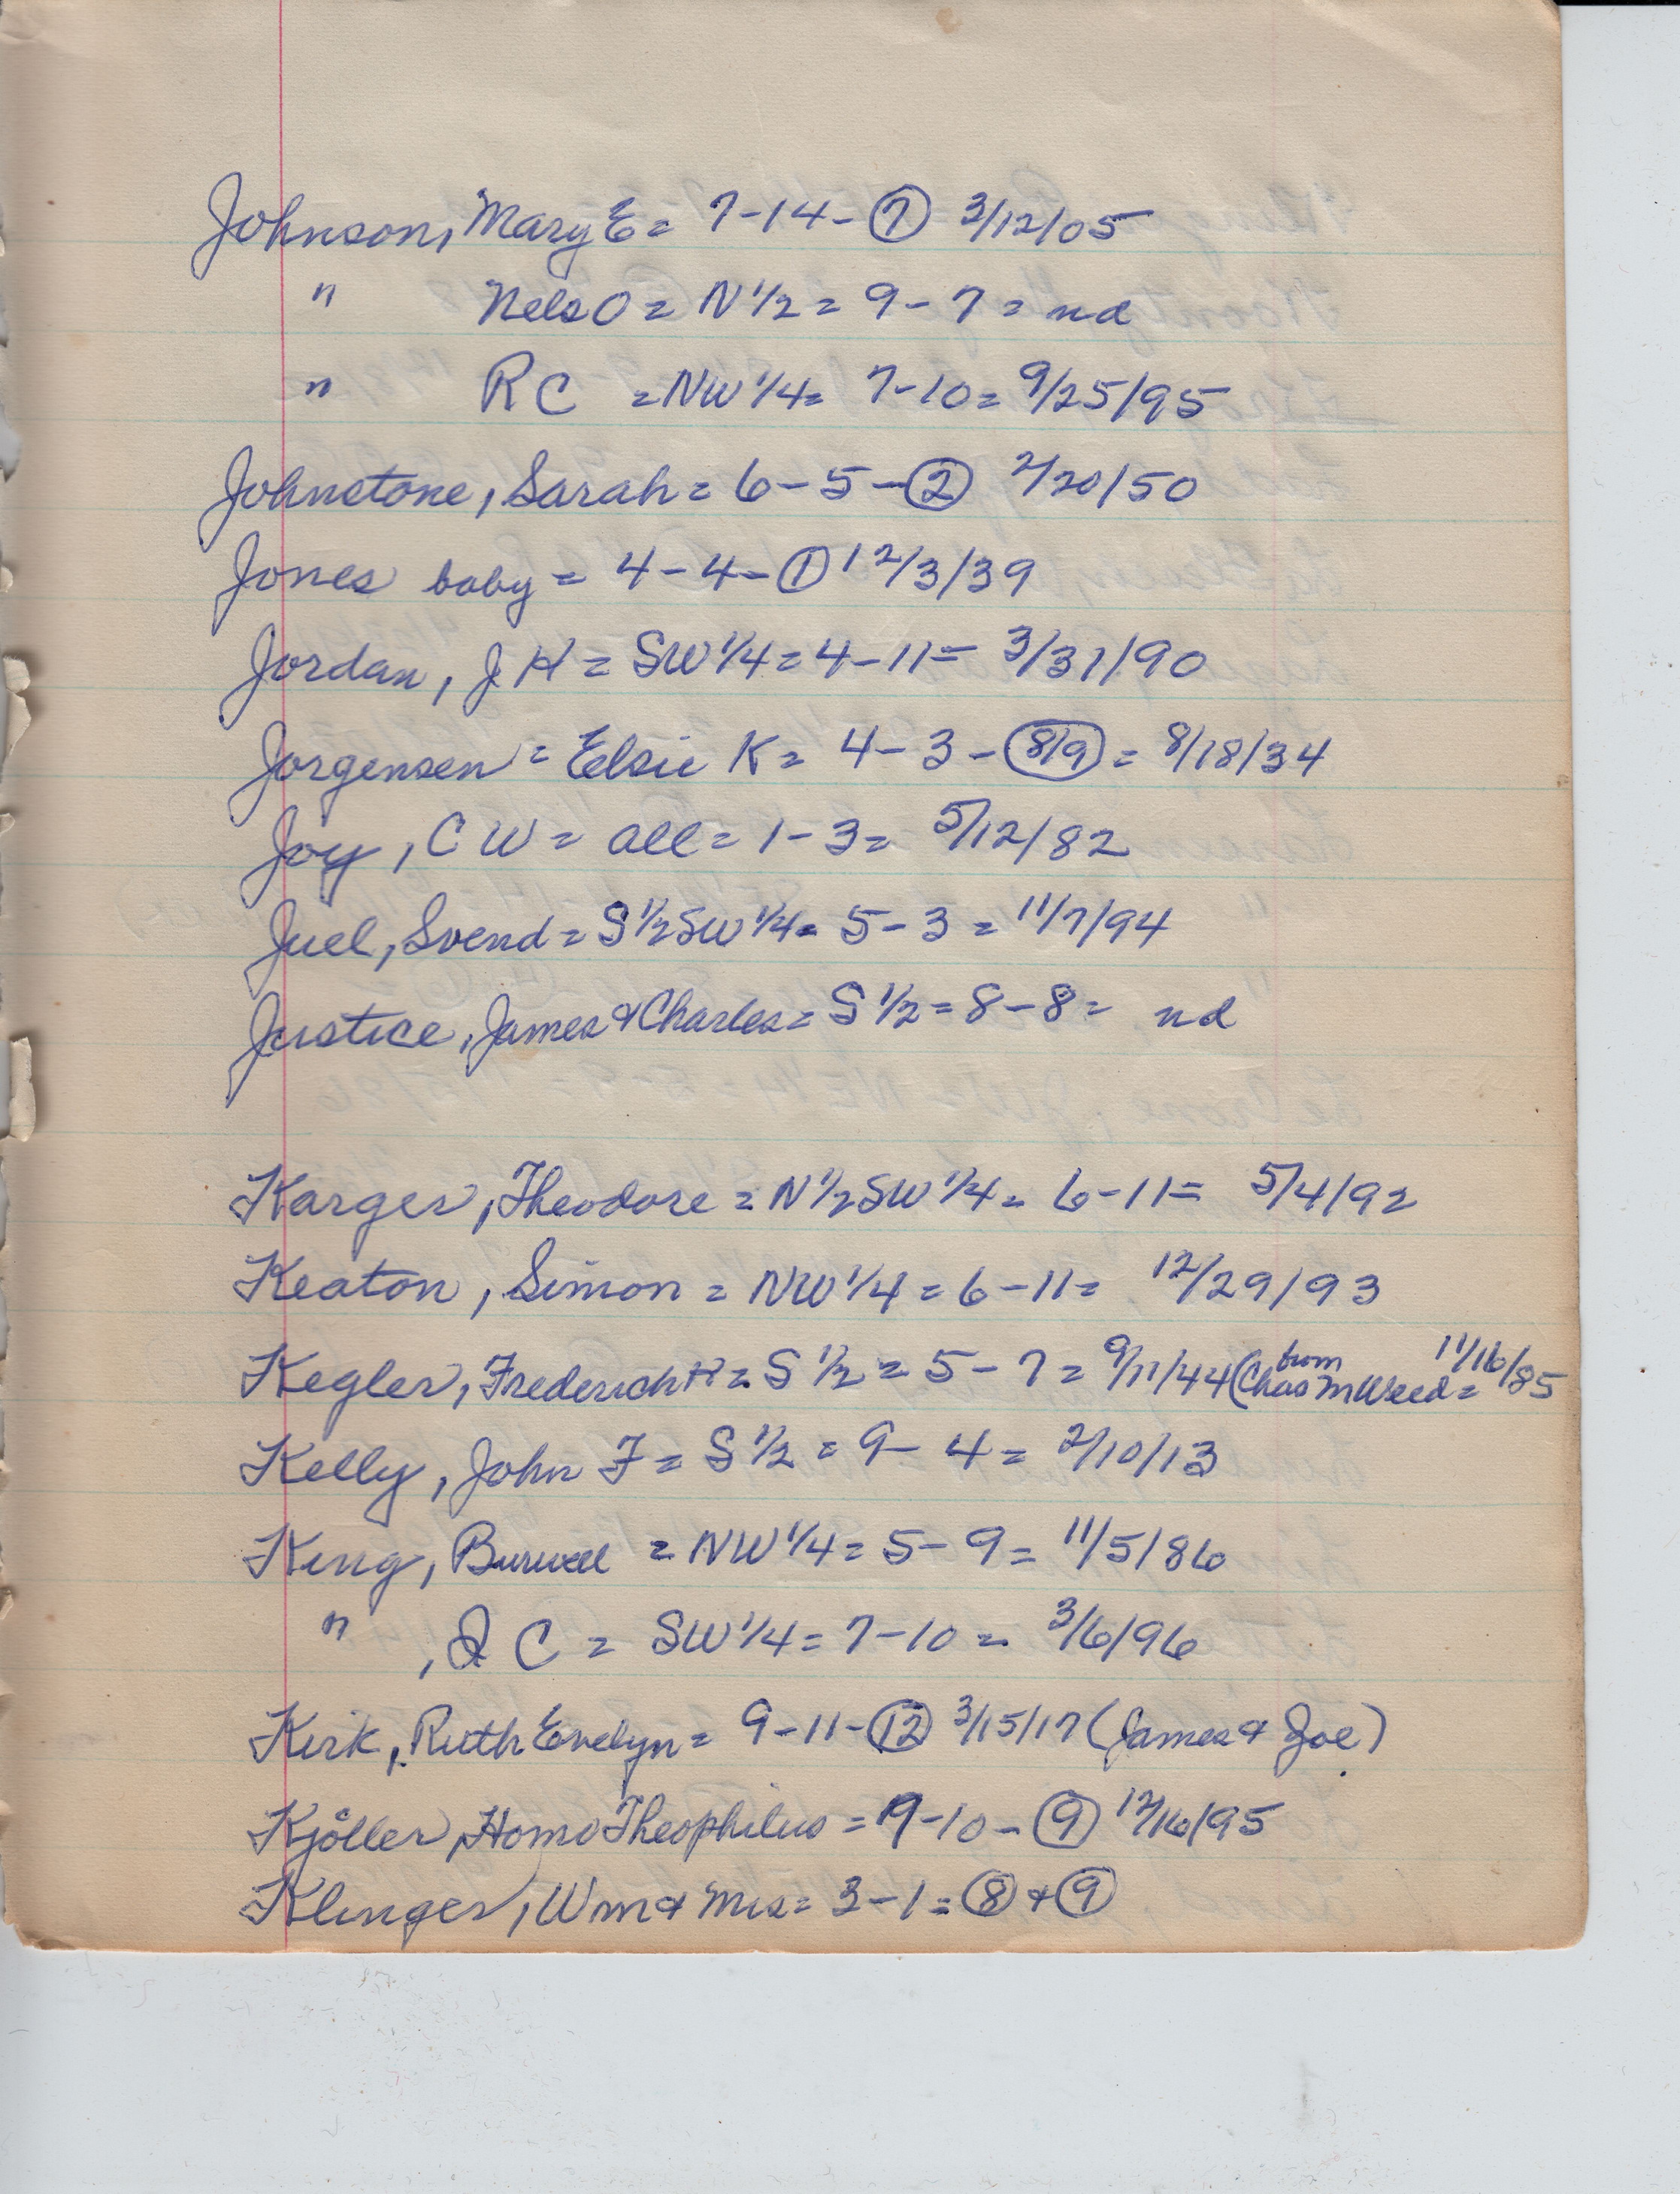 Johnson, Mary E = 7-14-⑦ 3/12/05
" Nels O = N 1/2 = 9-7 = nd
" R C = NW 1/4 = 7-10 = 9/25/95
Johnstone, Sarah = 6-5-② 2/20/50
Jones baby = 4-4-① 12/3/39
Jordan, J H = SW 1/4 = 4-11 = 3/31/90
Jorgensen = Elsie K = 4-3-(8/9) = 8/18/34
Joy, C W = all = 1-3 = 5/12/82
Juel, Svend = S 1/2 SW 1/4 = 5-3 = 11/7/94
Justice, James & Charles = S 1/2 = 8-8 = nd
Karger, Theodore = N 1/2 SW 1/4 = 6-11 = 5/4/92
Keaton, Simon = NW 1/4 = 6-11 = 12/29/93
Kegler, Frederich H = S 1/2 = 5-7 = 9/11/44 (from Chas M Weed = 11/16/85
Kelly, John F = S 1/2 = 9-4 = 2/10/13
King, Burwell = NW 1/4 = 5-9 = 11/5/86
" , I C = SW 1/4 = 7-10 = 3/6/96
Kirk, Ruth Evelyn = 9-11-⑫ 3/15/17 (James & Joe)
Kjöller, Homo Theophilus = 9-10-⑨ 12/16/95
Klinger, Wm & Mrs = 3-1 = ⑧ + ⑨